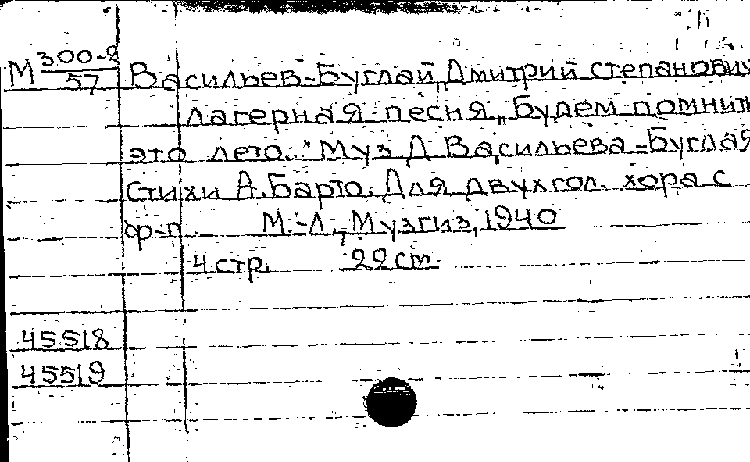 М 300-2/57
Васильев-Буглай, Дмитрий Степанович
Лагерная песня „Будем помнить
это лето." Муз Д. Васильева-Буглая
Стихи А. Барто. Для двухгол. хора с
ф-п. М.-Л., Музгиз, 1940
4 стр. 22 cm.
45518
45519